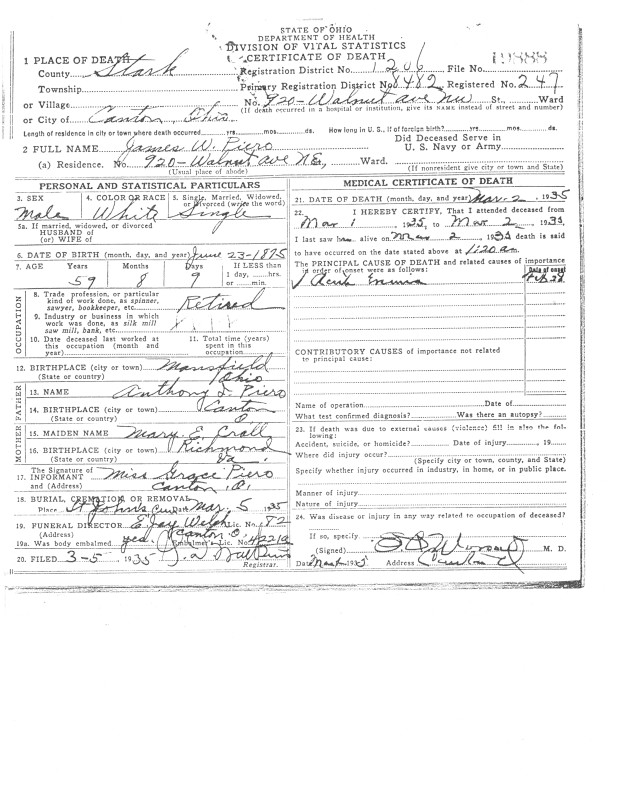 STATE OF OHIO
DEPARTMENT OF HEALTH
DIVISION OF VITAL STATISTICS
CERTIFICATE OF DEATH
1 PLACE OF DEATH
County Stark
Registration District No. 1206 File No. 19888
Township Primary Registration District No. 8482 Registered No. 247
or Village No. 920-Walnut Ave NW St., Ward
(If death occurred in a hospital or institution, give its NAME instead of street and number)
or City of Canton, Ohio
Length of residence in city or town where death occurred yrs. mos. ds. How long in U. S., if of foreign birth? yrs. mos. ds.
2 FULL NAME James W. Piero Did Deceased Serve in U. S. Navy or Army
(a) Residence. No. 920-Walnut Ave NE, Ward.
(Usual place of abode) (If nonresident give city or town and State)
PERSONAL AND STATISTICAL PARTICULARS
3. SEX Male
4. COLOR OR RACE White
5. Single, Married, Widowed, or Divorced (write the word) Single
5a. If married, widowed, or divorced
HUSBAND of
(or) WIFE of
6. DATE OF BIRTH (month, day, and year) June 23-1875
7. AGE Years 59 Months 8 Days 9 If LESS than 1 day, hrs. or min.
OCCUPATION
8. Trade, profession, or particular kind of work done, as spinner, sawyer, bookkeeper, etc. Retired
9. Industry or business in which work was done, as silk mill saw mill, bank, etc.
10. Date deceased last worked at this occupation (month and year)
11. Total time (years) spent in this occupation
12. BIRTHPLACE (city or town) Mansfield
(State or country) Ohio
FATHER
13. NAME Anthony J. Piero
14. BIRTHPLACE (city or town) Canton
(State or country) O.
MOTHER
15. MAIDEN NAME Mary E. Crall
16. BIRTHPLACE (city or town) Richmond
(State or country) Va.
17. The Signature of INFORMANT Miss Grace Piero
and (Address) Canton, O.
18. BURIAL, CREMATION OR REMOVAL
Place St Johns Cem Date Mar. 5 1935
19. FUNERAL DIRECTOR E Jay Welch Lic. No. 82
(Address) Canton O.
19a. Was body embalmed yes. Embalmer's Lic. No. 4221a
20. FILED 3-5 1935 Registrar.
MEDICAL CERTIFICATE OF DEATH
21. DATE OF DEATH (month, day, and year) Mar-2, 1935
22. I HEREBY CERTIFY, That I attended deceased from
Mar 1 1935, to Mar 2, 1935
I last saw h alive on Mar 2, 1935 death is said
to have occurred on the date stated above at 1:20 am
The PRINCIPAL CAUSE OF DEATH and related causes of importance
in order of onset were as follows: Date of onset
CONTRIBUTORY CAUSES of importance not related
to principal cause:
Name of operation Date of
What test confirmed diagnosis? Was there an autopsy?
23. If death was due to external causes (violence) fill in also the following:
Accident, suicide, or homicide? Date of injury , 19
Where did injury occur?
(Specify city or town, county, and State)
Specify whether injury occurred in industry, in home, or in public place.
Manner of injury
Nature of injury
24. Was disease or injury in any way related to occupation of deceased?
If so, specify
(Signed) M. D.
Date 1935 Address Canton O